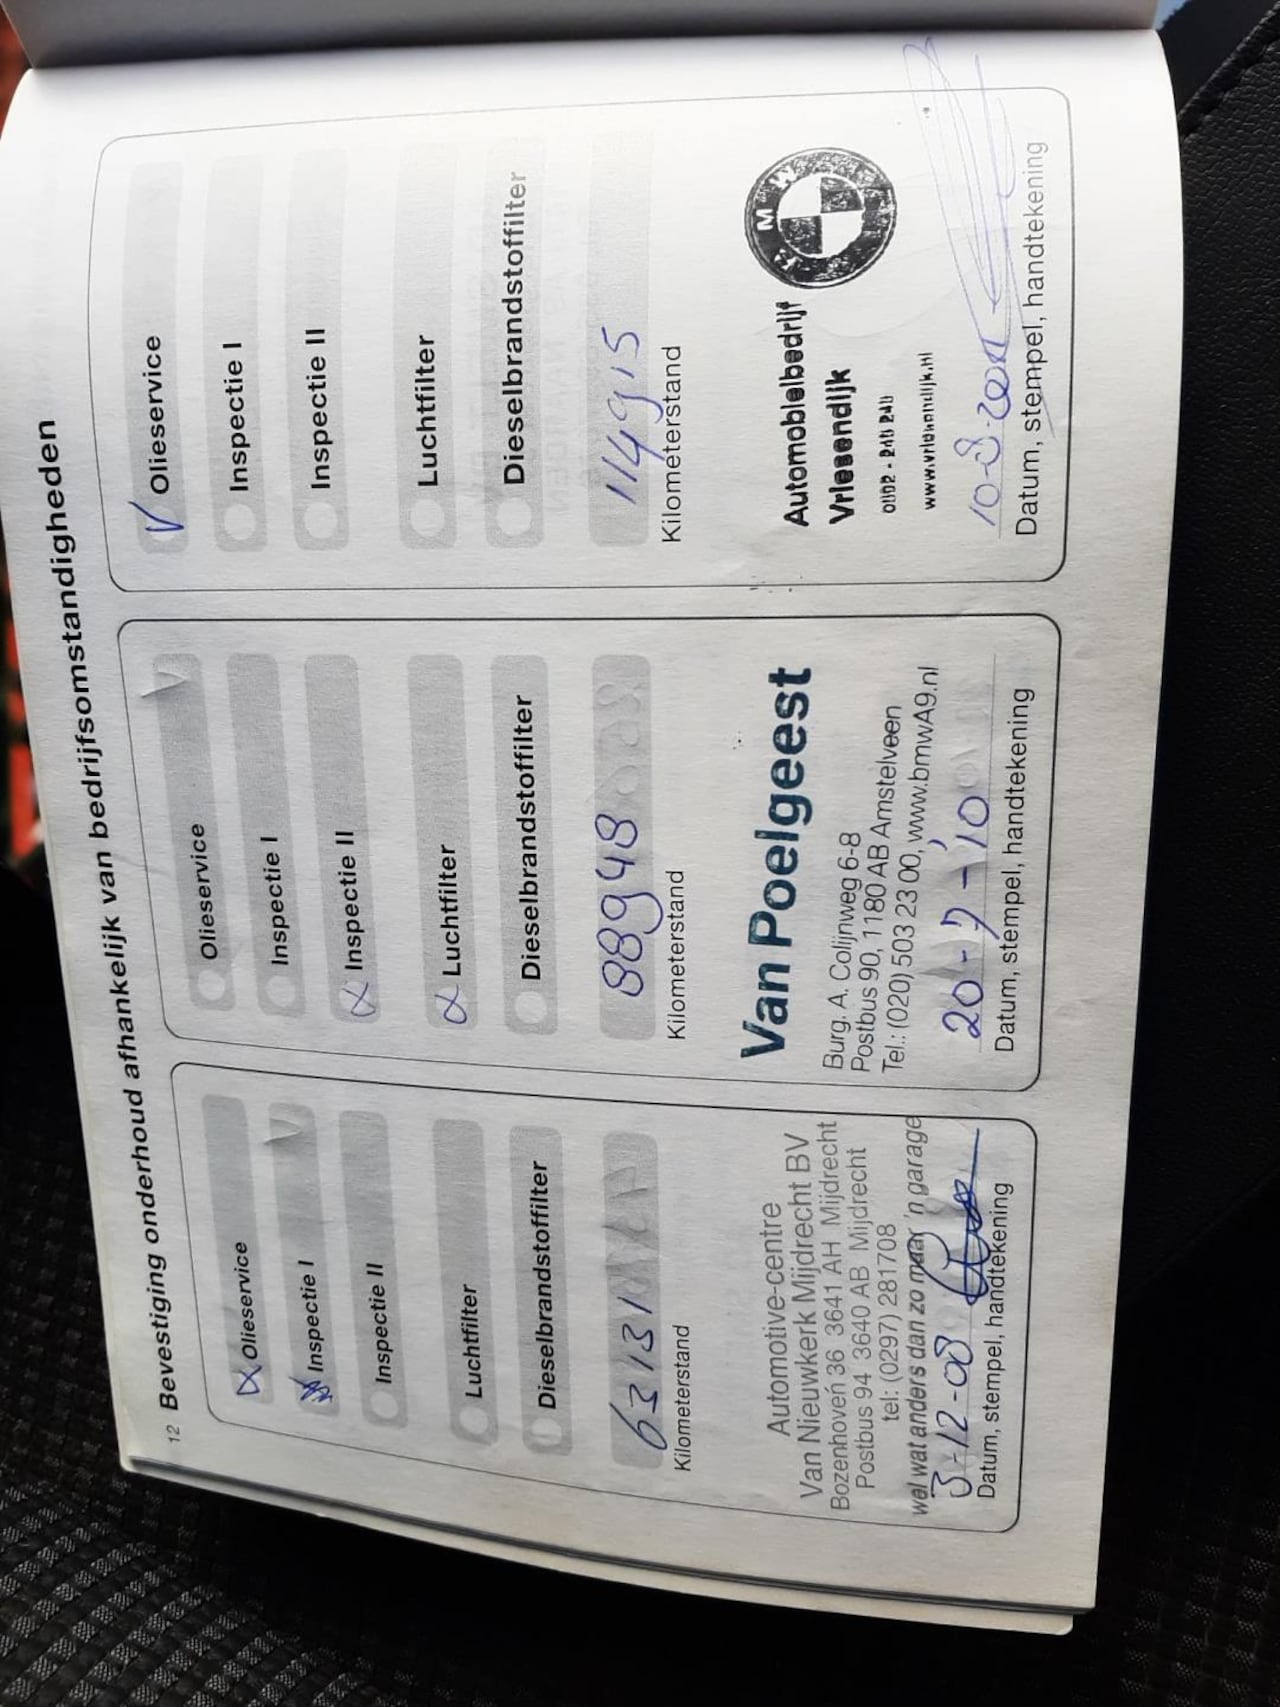 12 Bevestiging onderhoud afhankelijk van bedrijfsomstandigheden
Olieservice
Inspectie I
Inspectie II
Luchtfilter
Dieselbrandstoffilter
63131
Kilometerstand
Automotive-centre
Van Nieuwkerk Mijdrecht BV
Bozenhoven 36 3641 AH Mijdrecht
Postbus 94 3640 AB Mijdrecht
tel: (0297) 281708
wel wat anders dan zo maar 'n garage
3-12-08
Datum, stempel, handtekening
Olieservice
Inspectie I
Inspectie II
Luchtfilter
Dieselbrandstoffilter
88948
Kilometerstand
Van Poelgeest
Burg. A. Colijnweg 6-8
Postbus 90, 1180 AB Amstelveen
Tel.: (020) 503 23 00, www.bmwA9.nl
20-7-'10
Datum, stempel, handtekening
V Olieservice
Inspectie I
Inspectie II
Luchtfilter
Dieselbrandstoffilter
114915
Kilometerstand
BMW
Automobielbedrijf
Vriesendijk
Datum, stempel, handtekening